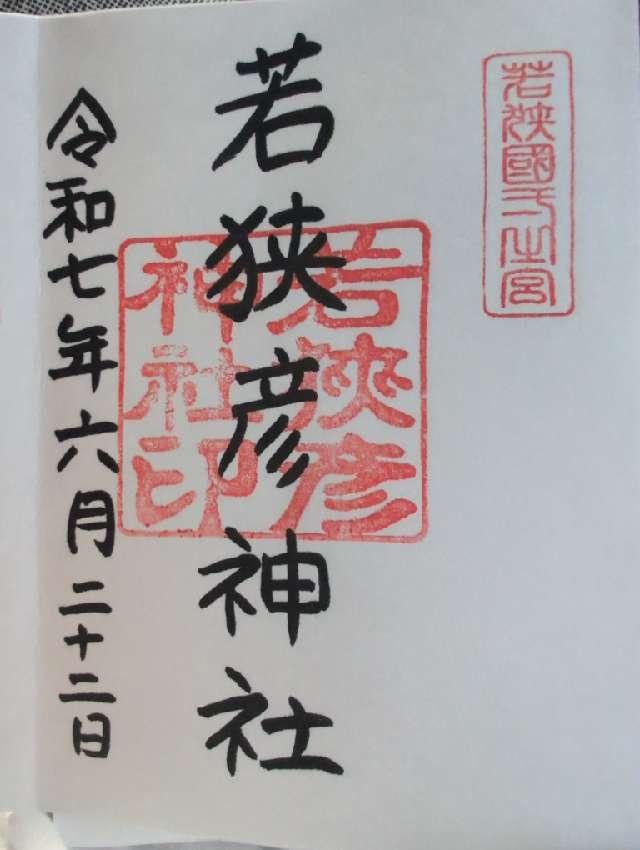 若狭國一之宮
若狹彦
神社印
若狭彦神社
令和七年六月二十二日